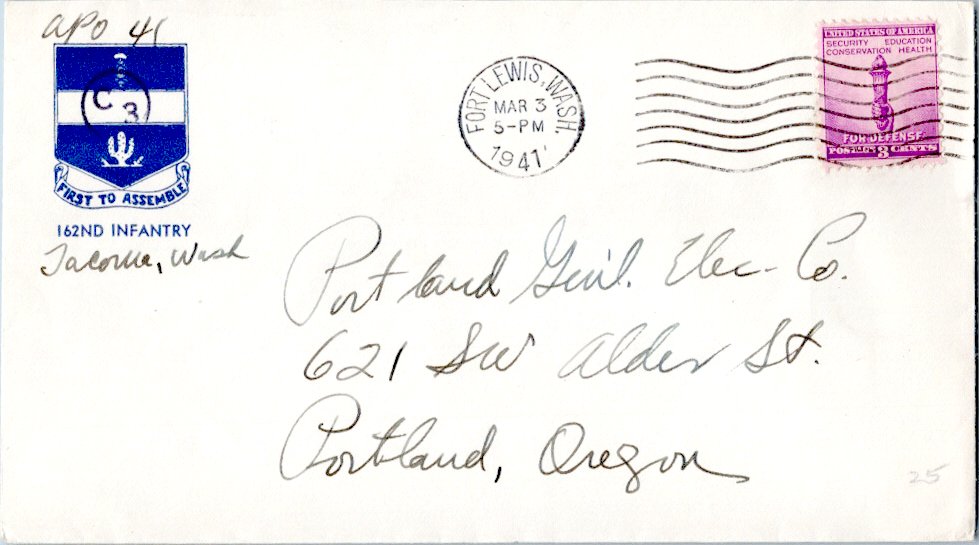 APO 41
C 3
FIRST TO ASSEMBLE
162ND INFANTRY
Tacoma, Wash
FORT LEWIS, WASH.
MAR 3
5-PM
1941
UNITED STATES OF AMERICA
SECURITY EDUCATION
CONSERVATION HEALTH
FOR DEFENSE
POSTAGE 3 CENTS
Portland Gen'l. Elec. Co.
621 SW Alder St.
Portland, Oregon
25